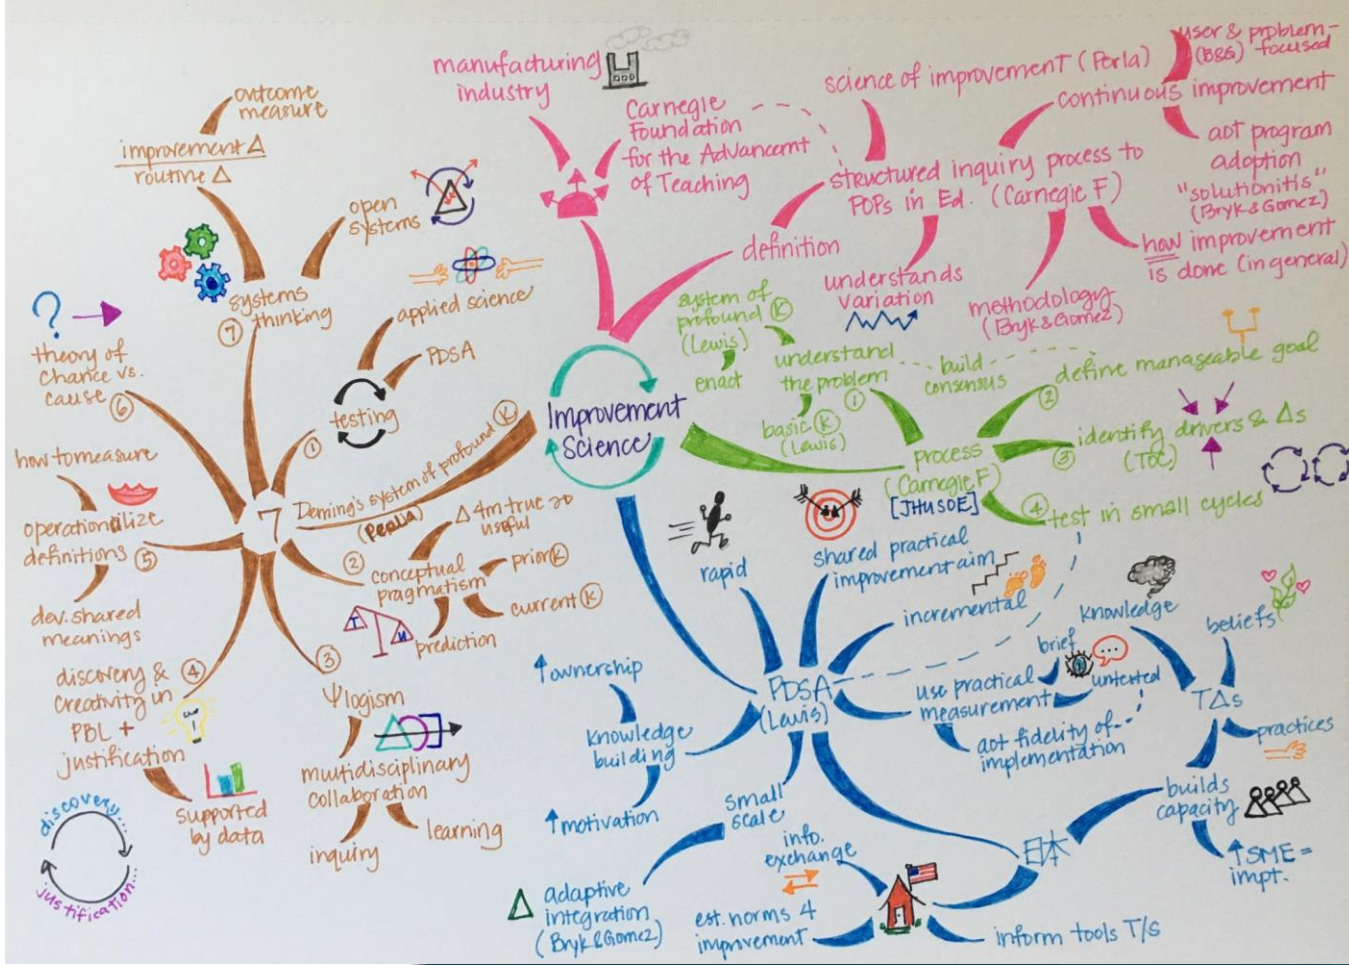 manufacturing
industry
Carnegie
Foundation
for the Advancemt
of Teaching
definition
science of improvement (Perla)
structured inquiry process to
POPs in Ed. (Carnegie F)
user & problem-
(B&G) focused
continuous improvement
aot program
adoption
"solutionitis"
(Bryk & Gomez)
how improvement
is done (in general)
methodology
(Bryk & Gomez)
understands
variation
Improvement
Science
system of
profound K
(Lewis)
enact
understand
the problem
1
basic K
(Lewis)
build
consensus
Process
(Carnegie F)
[JHU SOE]
2
define manageable goal
3
identify drivers & Δs
(TOC)
4
test in small cycles
PDSA
(Lewis)
rapid
shared practical
improvement aim
incremental
use practical
measurement
brief
untested
aot fidelity of
implementation
knowledge
beliefs
TΔs
practices
builds
capacity
↑SME =
impt.
日本
inform tools T/S
est. norms 4
improvement
info.
exchange
small
scale
adaptive
integration
(Bryk & Gomez)
knowledge
building
↑ownership
↑motivation
Deming's system of profound K
(Perla)
7
1
testing
applied science
PDSA
2
conceptual
pragmatism
Δ 4m true 2o
useful
prior K
current K
prediction
T
M
3
Ψlogism
multidisciplinary
collaboration
inquiry
learning
4
discovery &
creativity in
PBL +
justification
supported
by data
discovery...
justification...
5
operationalize
definitions
how to measure
dev. shared
meanings
6
?
theory of
chance vs.
cause
7
systems
thinking
open
systems
improvement Δ
routine Δ
outcome
measure